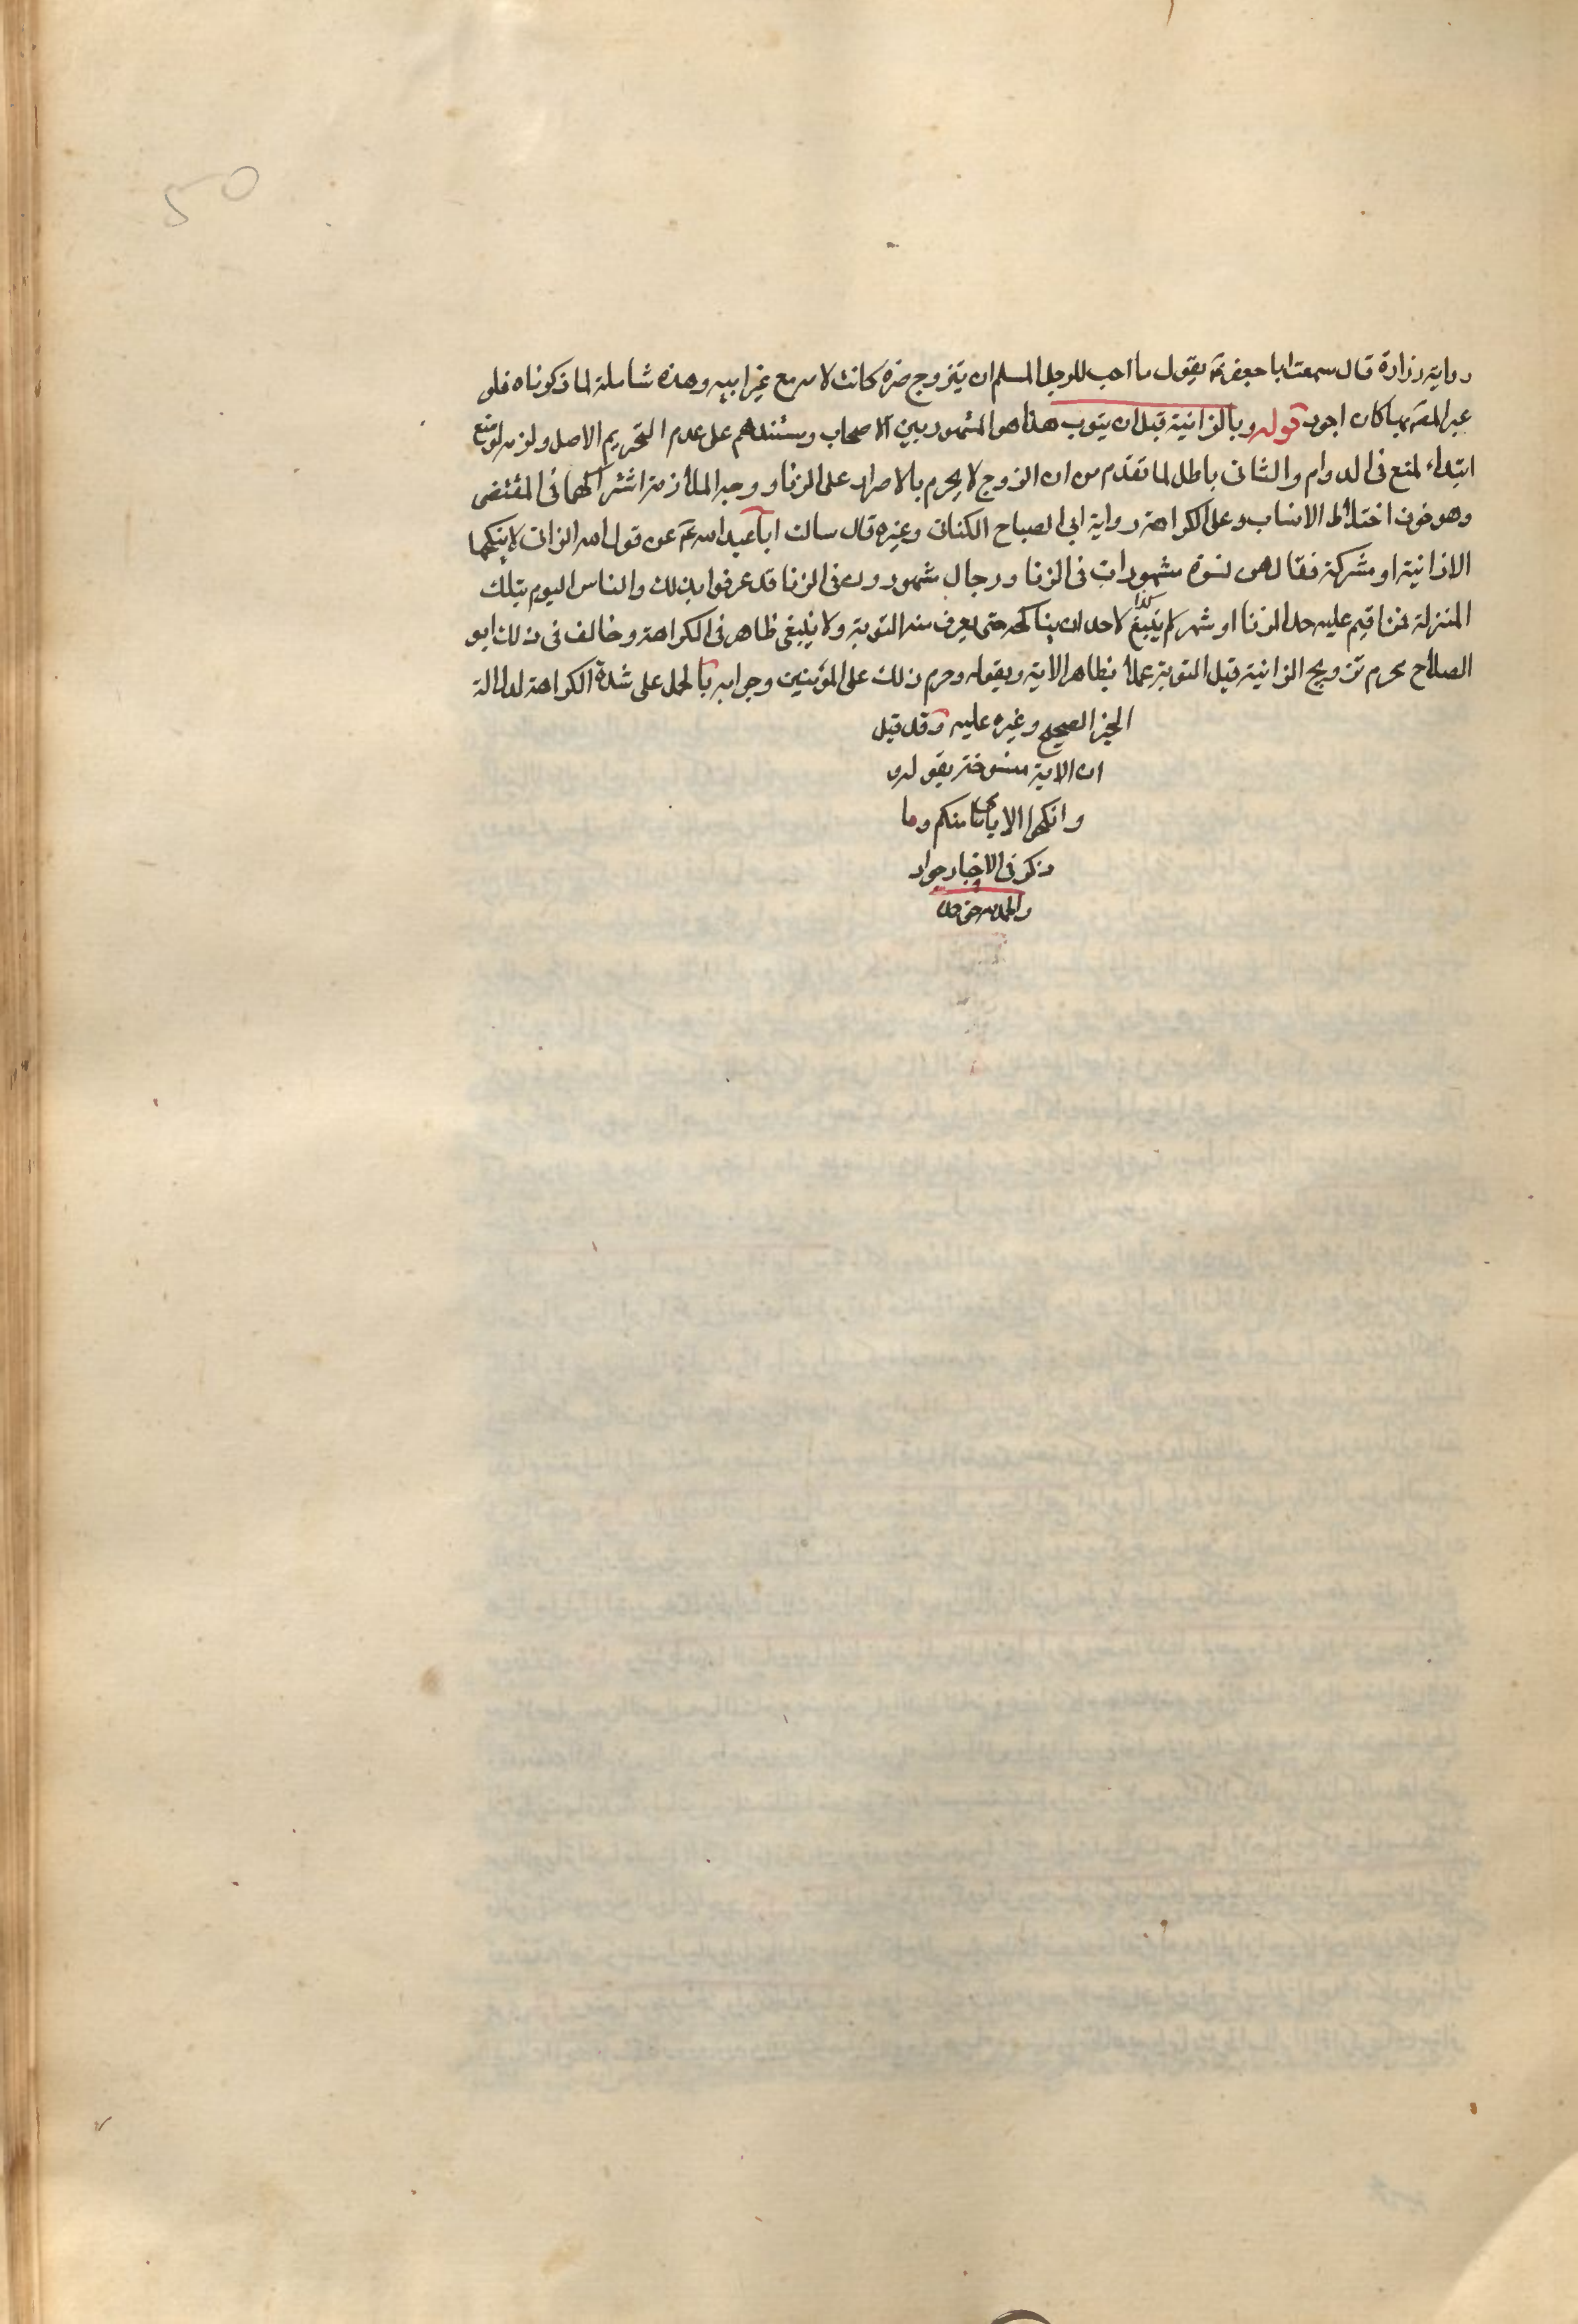 50
رواية زرارة قال سمعت ابا جعفر ع يقول ما احب للرجل المسلم ان يتزوج ضرة كانت لامه مع غير ابيه وهذه شاملة لما ذكرناه فلو
عبر المص بها كان اجود قوله وبالزانية قبل ان يتوب هذا هو المشهور بين الاصحاب ومستندهم على عدم التحريم الاصل ولزمه لو منع
ابتداء لمنع في الدوام والثاني باطل لما تقدم من ان الزوج لا يحرم بالاصرار على الزنا ووجه الملازمة اشتراكهما في المقتضى
وهو خوف اختلاط الانساب وعلى الكراهة رواية ابي الصباح الكناني وغيره قال سالت ابا عبد الله ع عن قول الله الزاني لا ينكحها
الا زانية او مشركة فقال هن نسوة مشهورات في الزنا ورجال مشهورون في الزنا قد عرفوا بذلك والناس اليوم بتلك
المنزلة فمن اقيم عليه حد الزنا او شهر لم ينبغ لاحد ان يناكحه حتى يعرف منه التوبة ولا ينبغي ظاهر في الكراهة وخالف في ذلك ابو
الصلاح يحرم تزويج الزانية قبل التوبة عملا بظاهر الاية وبقوله وحرم ذلك على المؤمنين وجوابه بالحمل على شدة الكراهة لدلالة
الخبر الصحيح وغيره عليه وقد قيل
ان الاية منسوخة بقوله
وانكحوا الايامى منكم وما
ذكر في الاخبار جواد
والحمد لله حق حمده